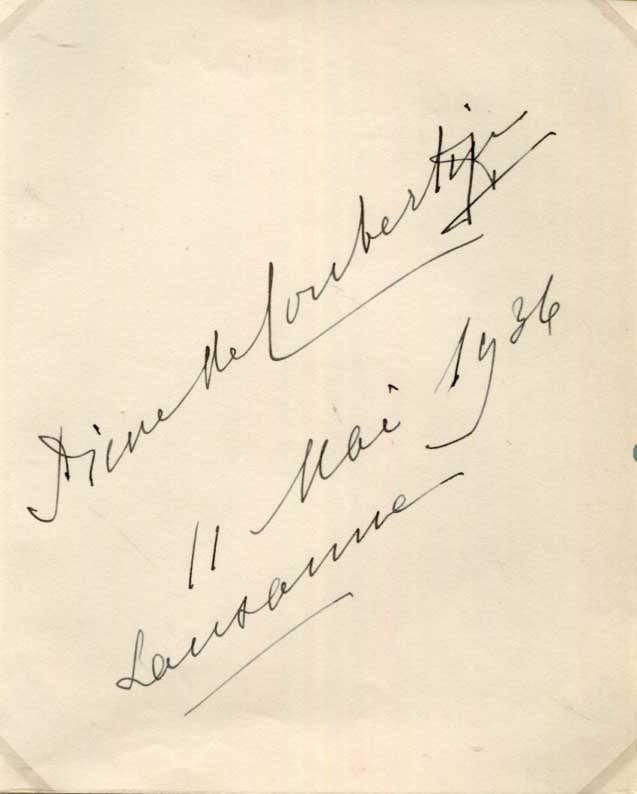 Pierre de Coubertin
11 Mai 1936
Lausanne